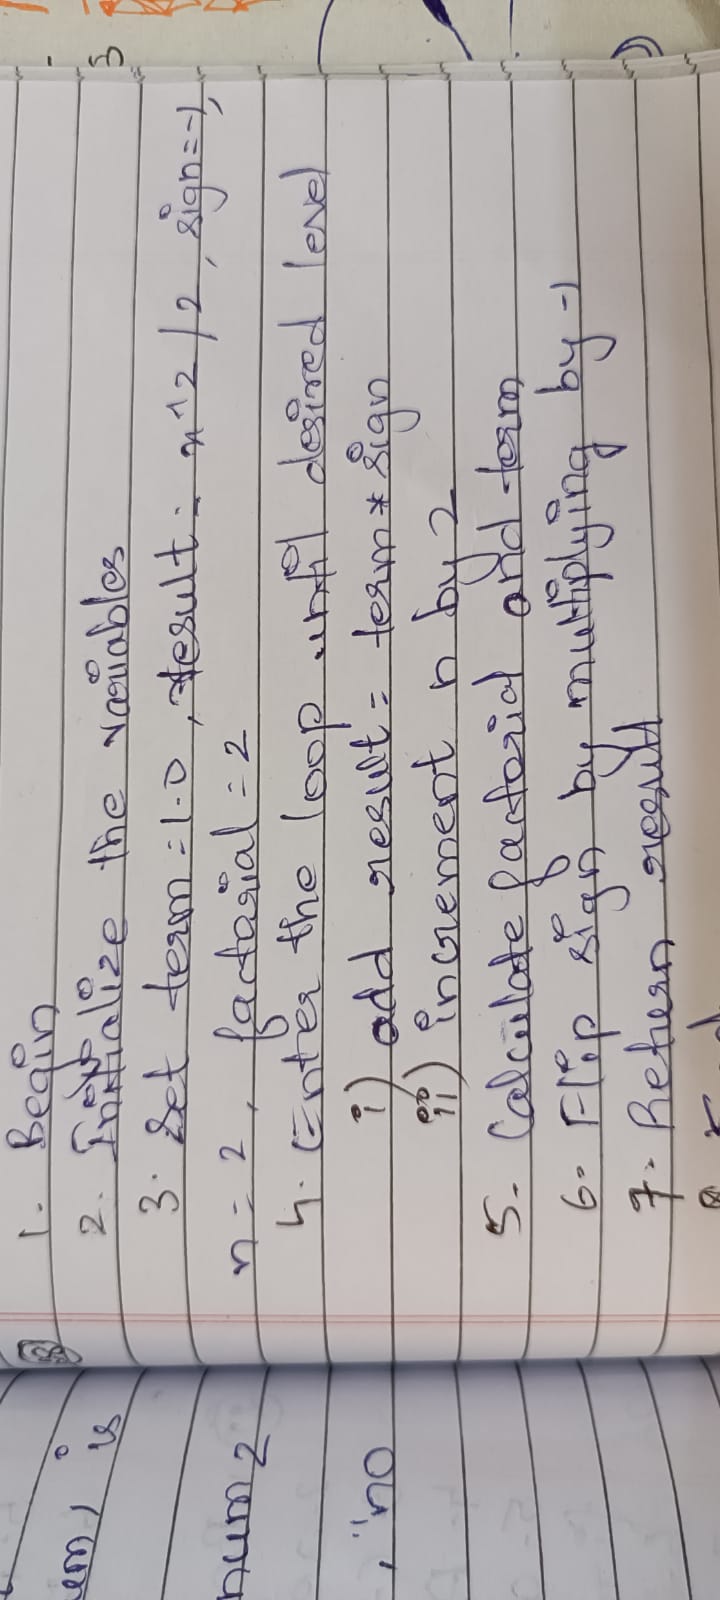 1. Begin
2. Initialize the variables
3. Set term = 1.0, result = x^2/2, sign = -1,
n = 2, factorial = 2
4. Enter the loop until desired level
i) add result = term * sign
ii) increment n by 2
5. Calculate factorial and term
6. Flip sign by multiplying by -1
7. Return result
8.
is
num2
, "no